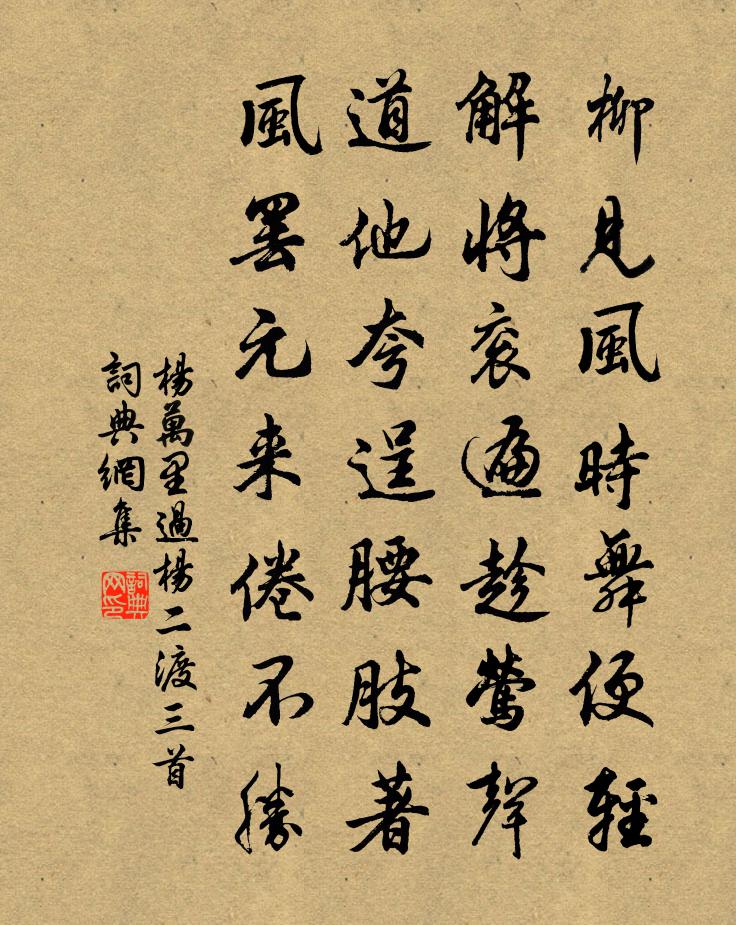 柳見風時舞便輕
解將衮遍趁鶯聲
道他夸逞腰肢著
風罢元来倦不勝
楊萬里過楊二渡三首
詞典網集
詞典网印